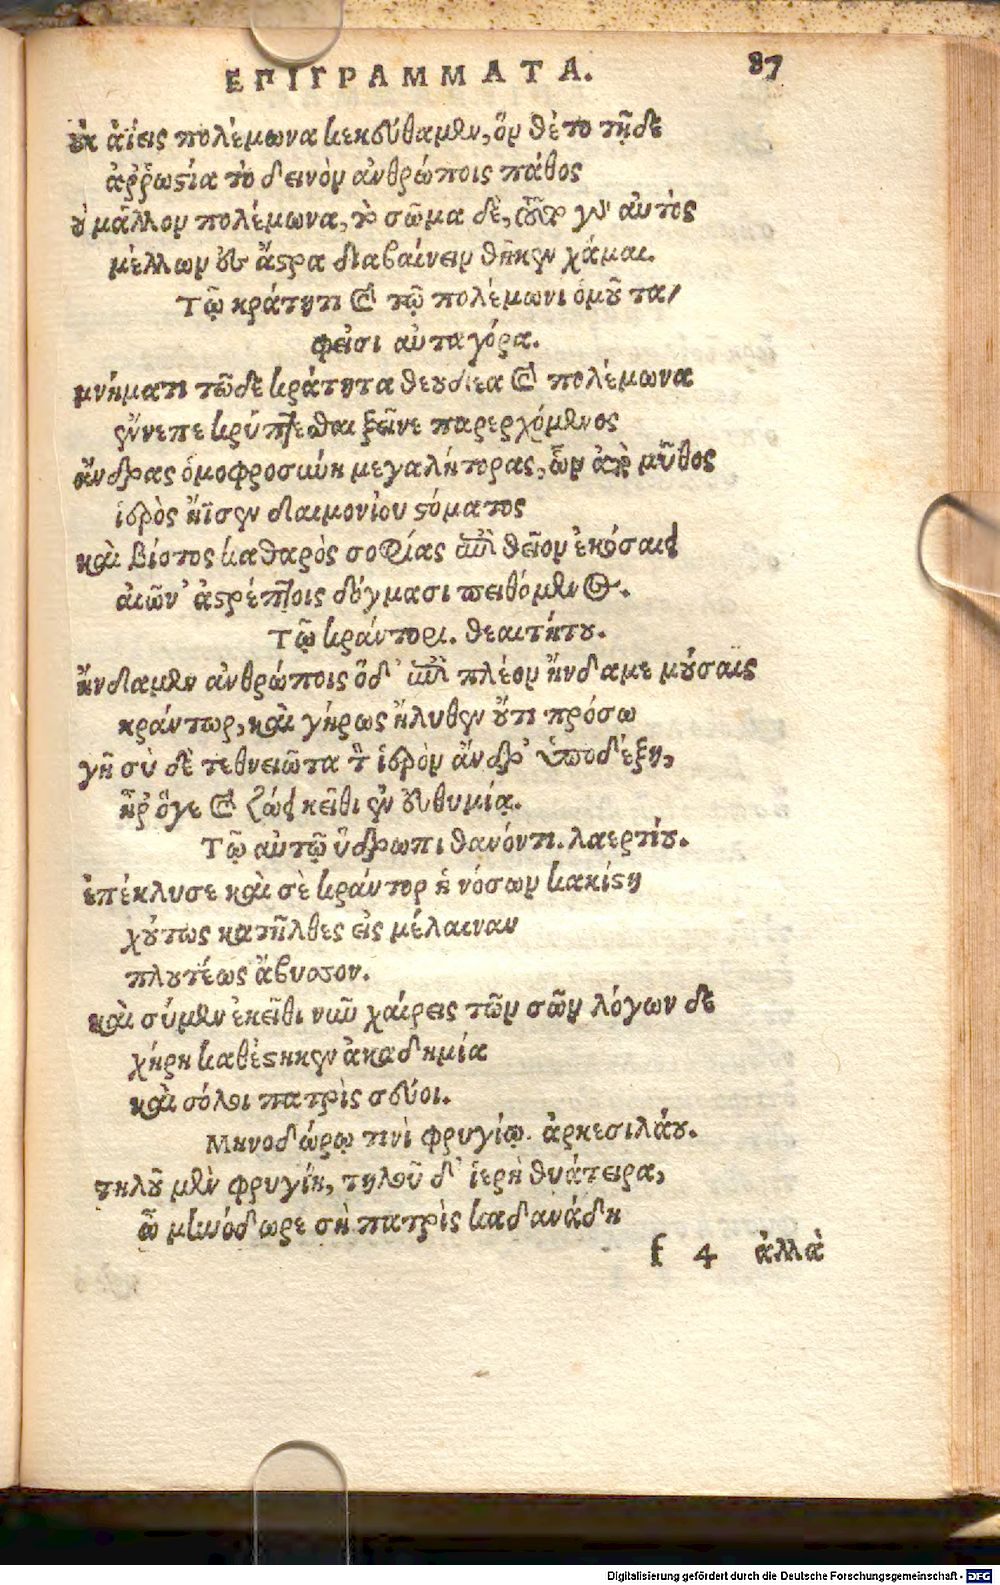 ΕΠΙΓΡΑΜΜΑΤΑ. 87
οὐκ ἀΐεις πολέμωνα κεκεύθαμεν, ὃν θέτο τῇδε
ἀῤῥωστία τὸ δεινὸν ἀνθρώποις πάθος
οὐ μᾶλλον πολέμωνα, τὸ σῶμα δὲ, τοῦτο γὰρ αὐτὸς
μέλλων ἐς ἄστρα διαβαίνειν θῆκεν χάμαι.
Τῷ κράτητι καὶ τῷ πολέμωνι ὁμοῦ τα-
φεῖσι ἀνταγόρα.
μνήματι τῶδε κράτητα θεουδέα καὶ πολέμωνα
ἔννεπε κρύπτεσθαι ξεῖνε παρερχόμενος
ἄνδρας ὁμοφροσύνη μεγαλήτορας, ὧν ἀπὸ μῦθος
ἱερὸς ἤϊσεν δαιμονίου στόματος
καὶ βίοτος καθαρὸς σοφίας ἐπὶ θεῖον ἐκόσμει
αἰῶν' ἀστρέπτοις δόγμασι πειθόμενος.
Τῷ κράντορι. θεαιτήτου.
ἥνδανεν ἀνθρώποις ὅδ' ἐπὶ πλέον ἥνδανε μούσαις
κράντωρ, καὶ γήρως ἤλυθεν οὔτι πρόσω
γῆ σὺ δὲ τεθνειῶτα τὸν ἱερὸν ἄνδρ' ὑποδέξῃ,
ἦρ' ὅγε καὶ ζώει κεῖθι ἐν εὐθυμίᾳ.
Τῷ αὐτῷ ὕδρωπι θανόντι. λαερτίου.
ἐπέκλυσε καὶ σὲ κράντορ ἡ νόσων κακίστη
χοὕτως κατῆλθες εἰς μέλαιναν
πλουτέως ἄβυσσον.
καὶ σύμεν ἐκεῖθι νῦν χαίρεις τῶν σῶν λόγων δὲ
χήρη καθέστηκεν ἀκαδημία
καὶ σόλοι πατρὶς σεῦοι.
Μηνοδώρῳ τινὶ φρυγίῳ. ἀρκεσιλάου.
τηλοῦ μὲν φρυγίη, τηλοῦ δ' ἱερὴ θυάτειρα,
ὦ μηνόδωρε σὴ πατρὶς καδανάδη
f 4 ἀλλὰ
Digitalisierung gefördert durch die Deutsche Forschungsgemeinschaft - DFG